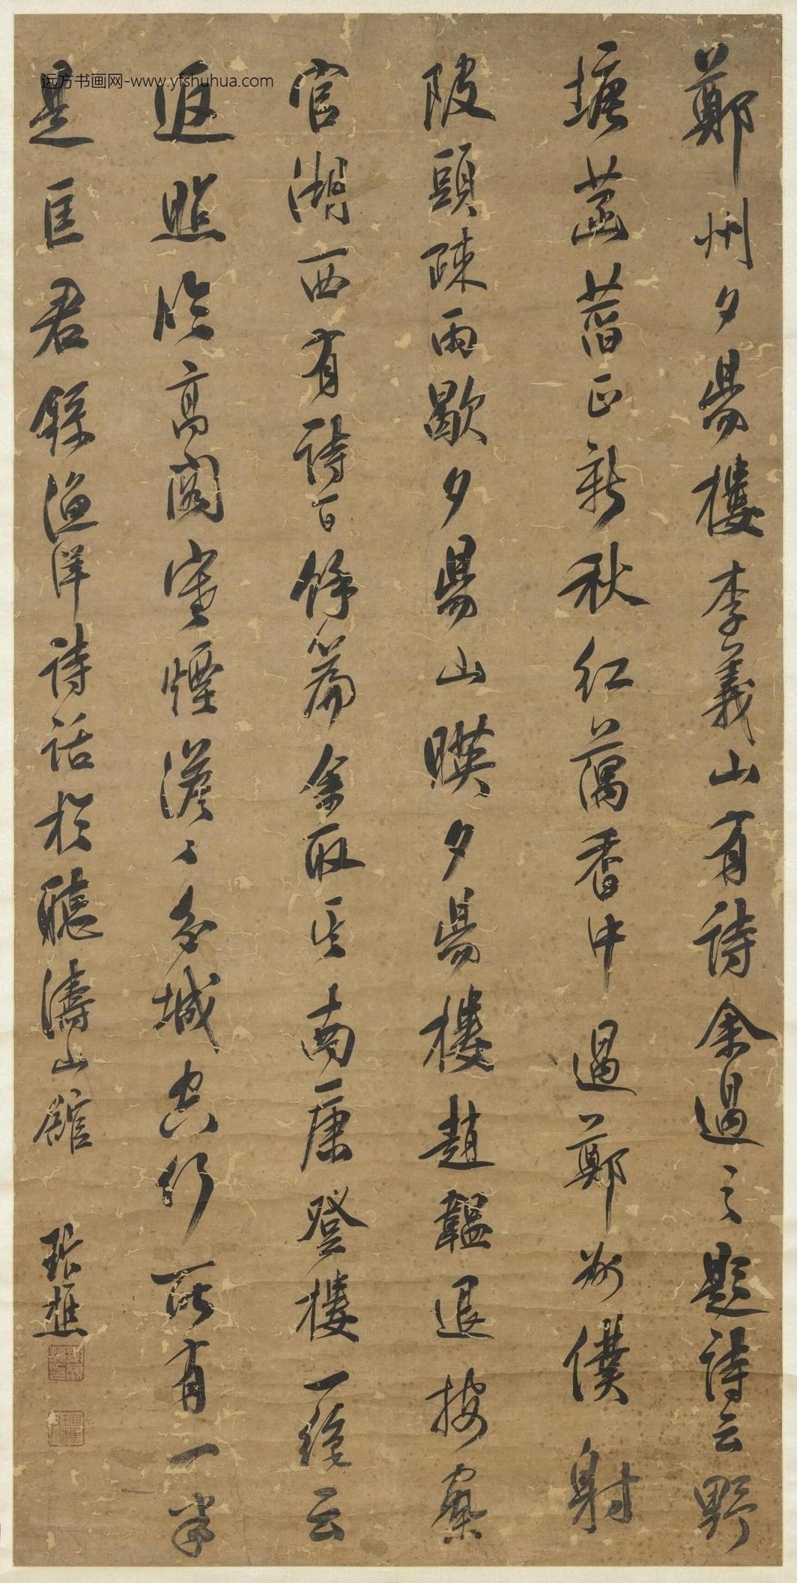 远方书画网-www.yfshuhua.com
鄭州夕陽樓李義山有詩余過之題詩云野
塘菡萏正新秋紅藕香中過鄭州僕射
陂頭疎雨歇夕陽山映夕陽樓趙韞退按察
官湖西有詩百餘篇余取其南康登樓一絶云
返照臨高閣寒煙澹澹多城空行所有一半
是匡君錄漁洋詩話於聽濤山館